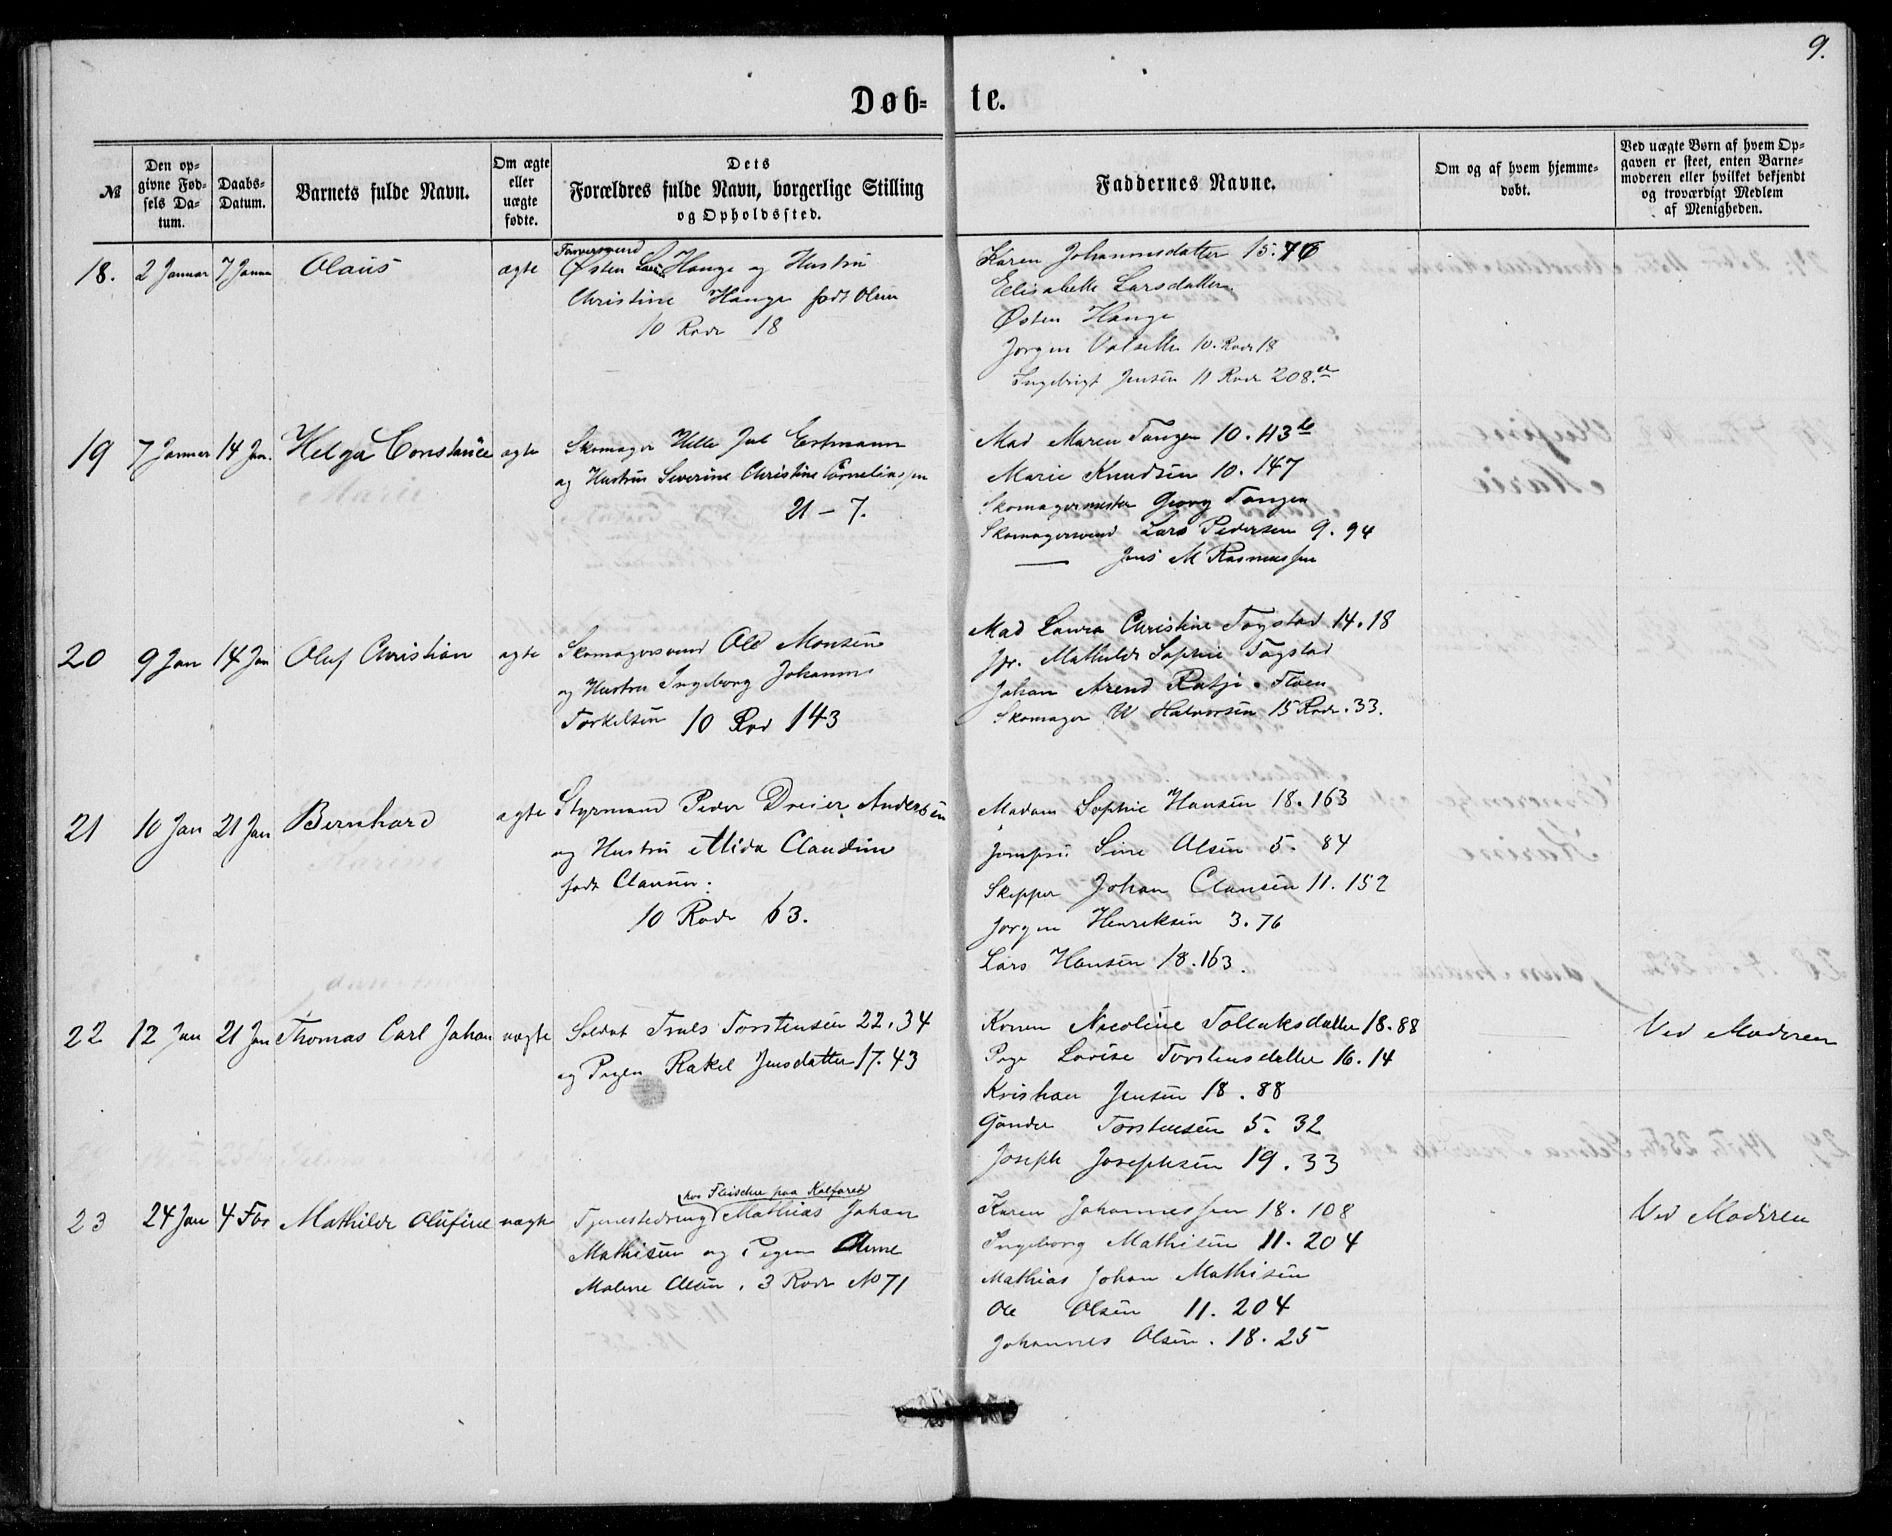 9.
Døb- te.
№
Den op-
givne Fød-
sels Da-
tum.
Daabs-
Datum.
Barnets fulde Navn.
Om ægte
eller
uægte
fødte.
Dets
Forældres fulde Navn, borgerlige Stilling
og Opholdssted.
Faddernes Navne.
Om og af hvem hjemme-
døbt.
Ved uægte Børn af hvem Op-
gaven er skeet, enten Barne-
moderen eller hvilket bekjendt
og troværdigt Medlem
af Menigheden.
18.
2 Januar
7 Janu
Olaus
ægte
Farversvend
Østen Hauge og Hustru
Christine Hauge født Olsen
10 Rode 18
Karen Johannesdatter 15.76
Elisabeth Larsdatter
Østen Hauge
Jørgen 10. Rode 18
Ingebrigt Jensen 11 Rode 208.a
19
7 Januar
14 Jan.
Helga Constance
ægte
Skomager Helle Jul Estmann
og Hustru Severine Christine Corneliussen
21 - 7.
Mad Maren Tangen 10. 43b
Marie Knudsen 10. 147
Skomagermester Georg Tangen
Skomagersvend Lars Pedersen 9. 94
— Jens M Rasmussen
20
9 Jan
14 Jan
Oluf Christian
ægte
Skomagersvend Ole Monsen
og Hustru Ingeborg Johanne
Torkelsen 10 Rod 143
Mad Laura Christine Togstad 14. 18
Jfr. Mathilde Sophie Togstad
Johan Arend Ratje. Floen
Skomager W Halvorsen 15 Rode. 33.
21
10 Jan
21 Jan
Bernhard
ægte
Styrmand Peder Dreier Andersen
og Hustru Alida Claudine
født Clausen.
10 Rode 63.
Madam Sophie Hansen 18. 163
Jomfru Sine Olsen 5. 84
Skipper Johan Clausen 11. 152
Jørgen Henriksen 3. 76
Lars Hansen 18. 163.
22
12 Jan
21 Jan
Thomas Carl Johan
uægte
Soldat Truls Torstensen 22. 34
og Pigen Rakel Jensdatter 17. 43
Konen Nicoline Tollaksdatter 18. 88
Pige Lovise Torstensdatter 16. 14
Kristian Jensen 18. 88
Gunder Torstensen 5. 32
Joseph Josephsen 19. 33
Ved Moderen
23
24 Jan
4 Feb
Mathilde Olufine
uægte
hos Fleischer paa Kalfaret
Tjenestedreng Mathias Johan
Mathisen og Pigen Anne
Malene Olsen. 3 Rode No 71
Karen Johannessen 18. 108
Ingeborg Mathisen 11. 204
Mathias Johan Mathisen
Ole Olsen 11. 204
Johannes Olsen. 18. 25
Ved Moderen